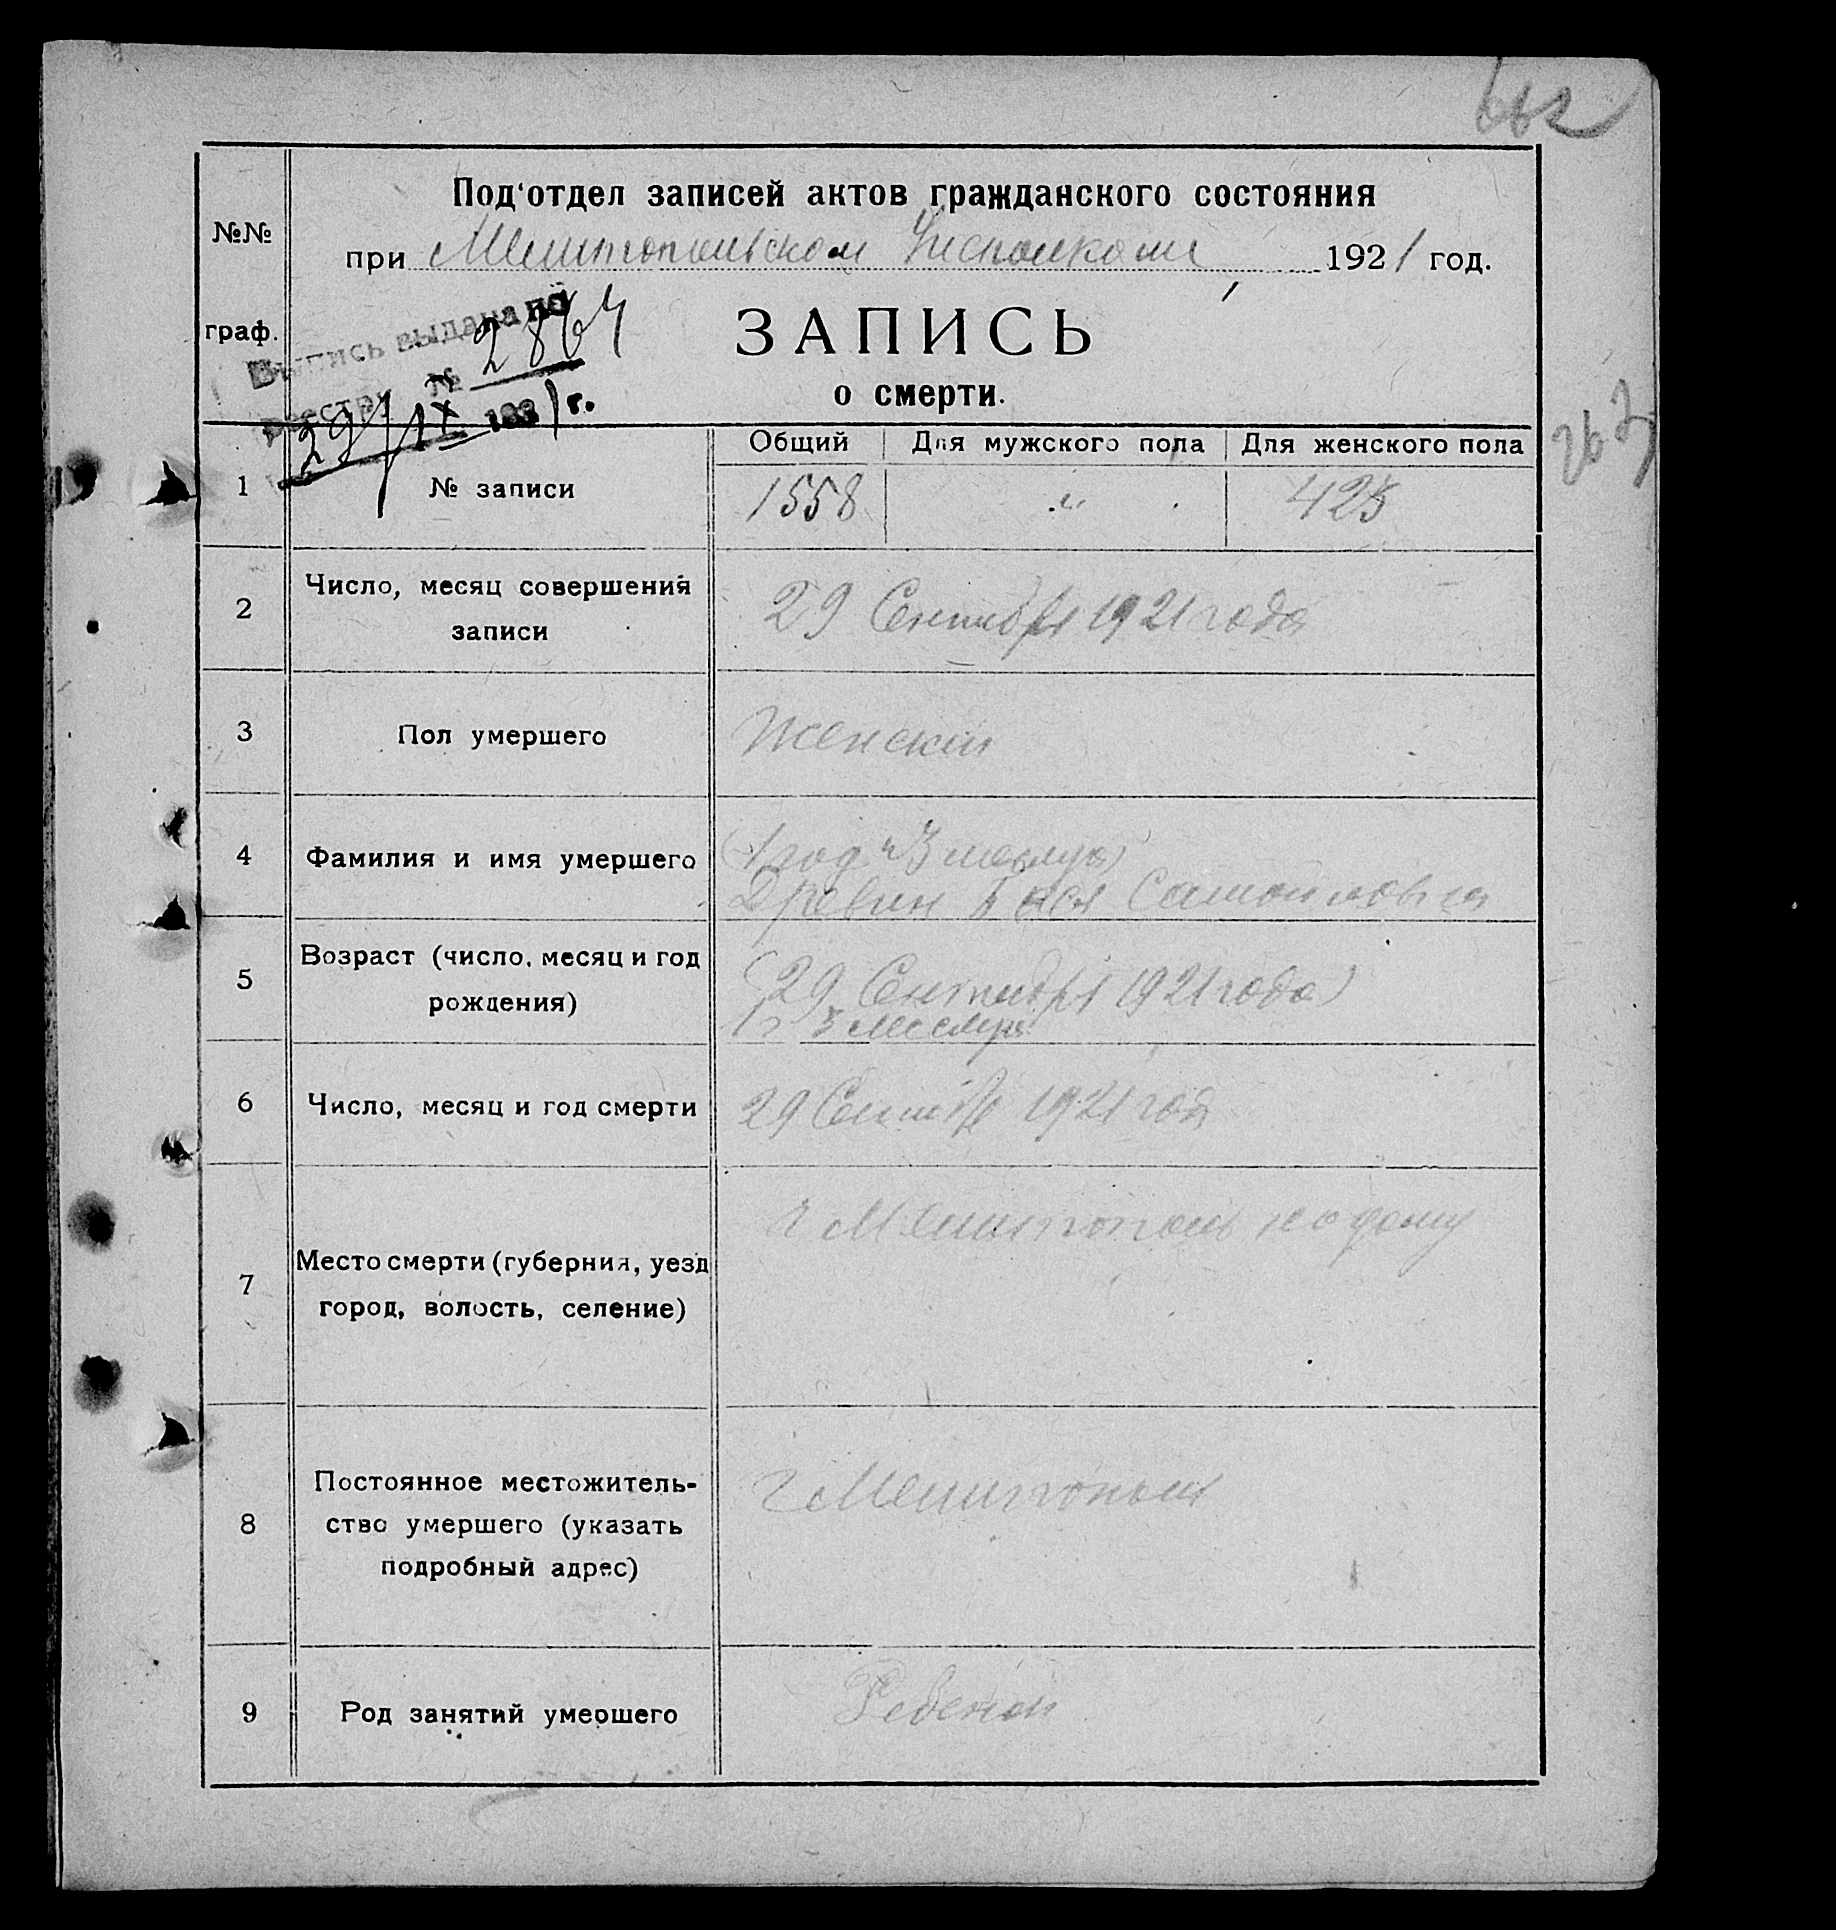 Под'отдел записей актов гражданского состояния
при Мелитопольском Исполкоме 1921 год.
№№
граф.
Выпись выдана по
реестру № 2864
29/IX 1921 г.
ЗАПИСЬ
о смерти.
Общий Для мужского пола Для женского пола
1 № записи 1558 " 425
2 Число, месяц совершения
записи
29 Сентября 1921 года
3 Пол умершего Женский
4 Фамилия и имя умершего
(1 год и 3 месяца)
Древин Бася Самойловна
5 Возраст (число, месяц и год
рождения)
(29 Сентября 1921 года)
1 г 3 месяца
6 Число, месяц и год смерти 29 Сентября 1921 год
7 Место смерти (губерния, уезд
город, волость, селение)
г Мелитополь на дому
8 Постоянное местожитель-
ство умершего (указать
подробный адрес)
г Мелитополь
9 Род занятий умершего Ребенок